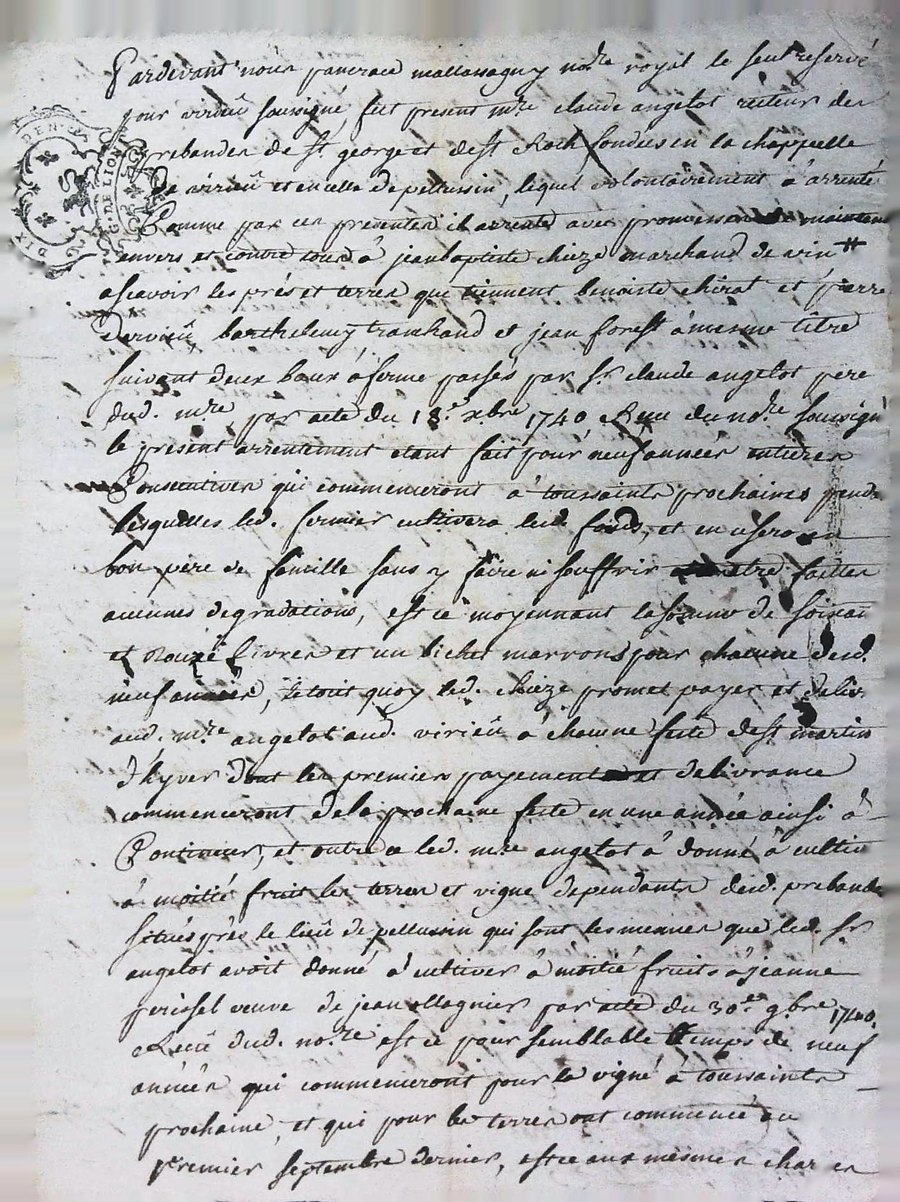 Pardevant nous pancrace mallassagny no.re royal le seul reservé
pour virieu soussigné fut present m.re claude angelot recteur des
prebandes de s.t george et de s.t Roch fondées en la chappelle
de virieû et en celle de pellussin, lequel volontairement à arrenté
Comme par ces presentes il arrente avec promesse de mainten
envers et contre tous à jean baptiste chieze marchand de vin
ascavoir les prés et terres que tiennent benoiste chirat et pierre
Dervieû, barthelemy tranchand et jean forest à mesme titre
suivant deux baux à ferme passés par s.r claude angelot pere
dud. m.re par acte du 18.e xbre 1740 Reçu du no.re soussigné
le present arrentement étant fait pour neuf années entieres
Consecutives qui commenceront à toussaints prochaines pend.
lesquelles led. fermier cultivera led. fonds, et en usera en
bon pere de famille sans y faire ni souffrir etre faittes
aucunes degradations, est ce moyennant la somme de soixan
et Douze Livres et un bichet marrons pour chacune desd.
neuf années, le tout quoy led. chieze promet payer et deliv
aud. m.re angelot aud. virieû à chacune feste de s.t martin
d'hyver dont les premiers payement et delivrance
commenceront de la prochaine feste en une année ainsi à
Continuer, et outre ce led. m.re angelot à donné à cultiv
à moitié fruit les terres et vigne dependants desd. prebandes
situés près le lieû de pellussin qui sont les mesmes que led. s.r
angelot avoit donné à cultiver à moitié fruits à jeanne
veuve de jean Magnier par acte du 30.e 9.bre 1740.
Receu dud. no.re est ce pour semblable temps de neuf
années qui commenceront pour la vigne à toussaints
prochaine, et qui pour les terres ont commencé au
premier septembre dernier, est ce aux mesmes char es